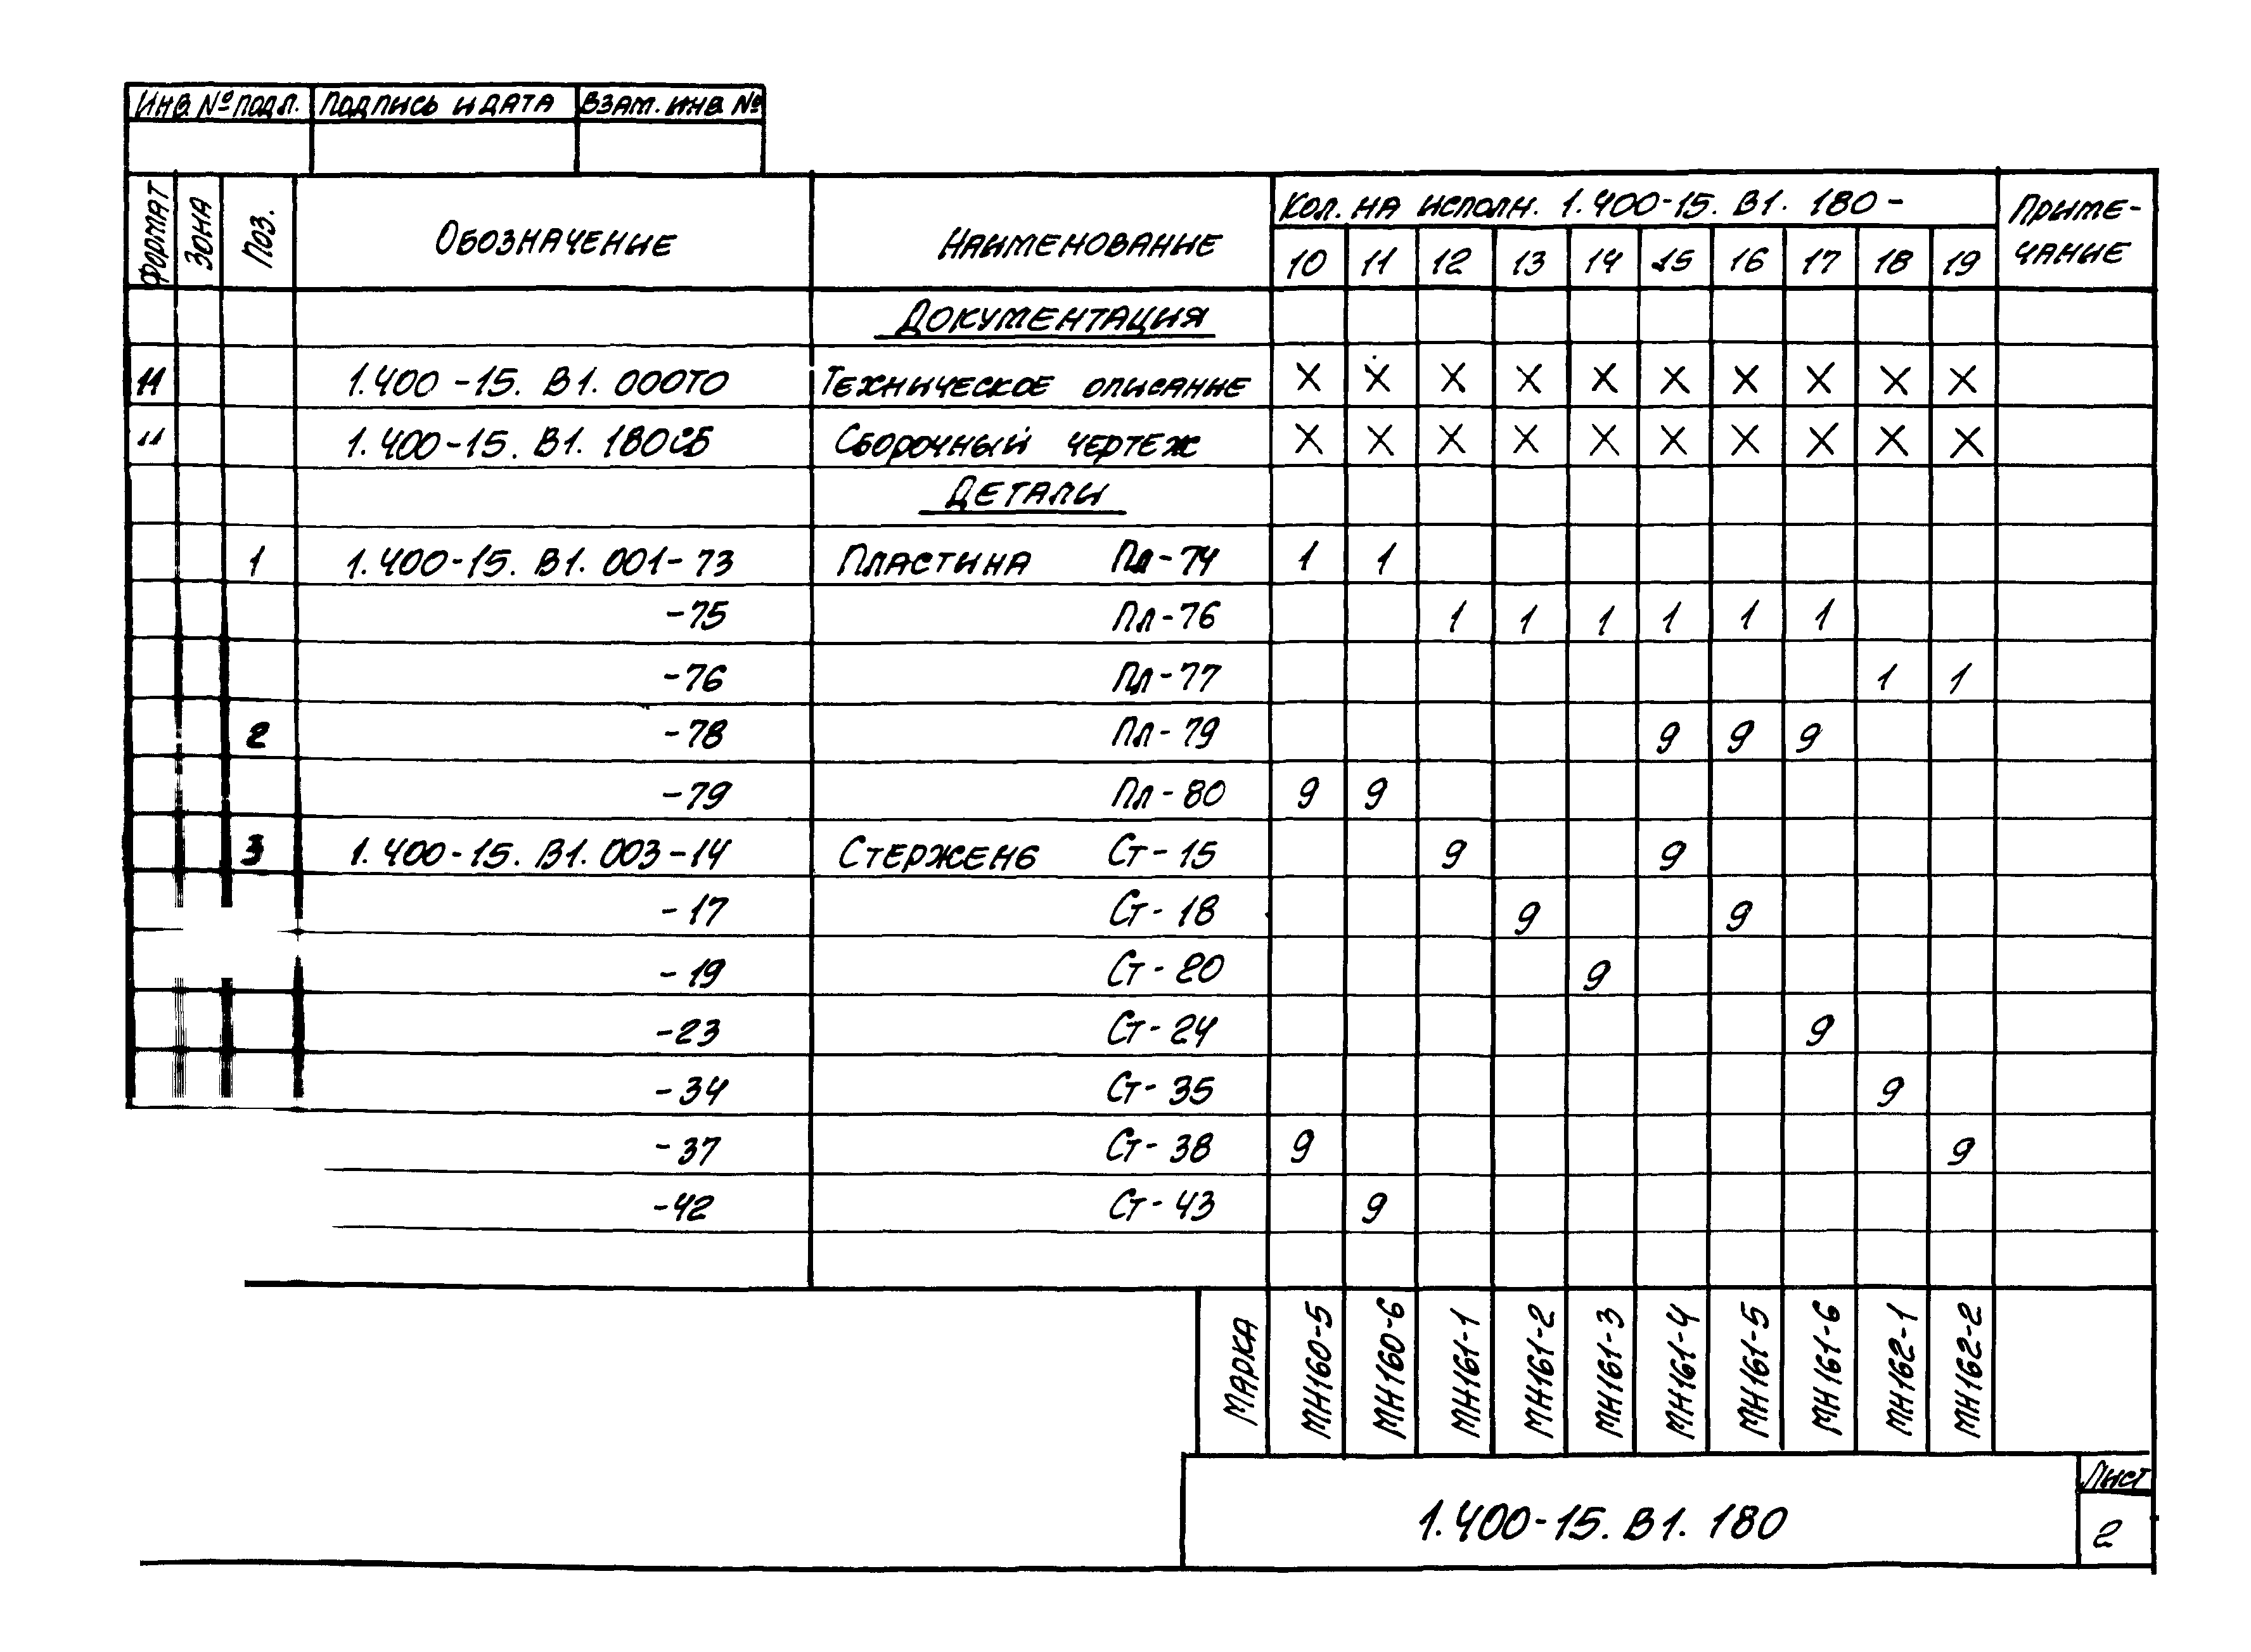 Инв. № подл. Подпись и дата Взам. инв. №
Формат Зона Поз. Обозначение Наименование Кол. на исполн. 1.400-15.В1.180- Приме-
10 11 12 13 14 15 16 17 18 19 чание
Документация
11 1.400-15.В1.000ТО Техническое описание X X X X X X X X X X
" 1.400-15.В1.180СБ Сборочный чертеж X X X X X X X X X X
Детали
1 1.400-15.В1.001-73 Пластина Пл-74 1 1
-75 Пл-76 1 1 1 1 1 1
-76 Пл-77 1 1
2 -78 Пл-79 9 9 9
-79 Пл-80 9 9
3 1.400-15.В1.003-14 Стержень Ст-15 9 9
-17 Ст-18 9 9
-19 Ст-20 9
-23 Ст-24 9
-34 Ст-35 9
-37 Ст-38 9 9
-42 Ст-43 9
Марка МН160-5 МН160-6 МН161-1 МН161-2 МН161-3 МН161-4 МН161-5 МН161-6 МН162-1 МН162-2
1.400-15.В1.180 Лист
2